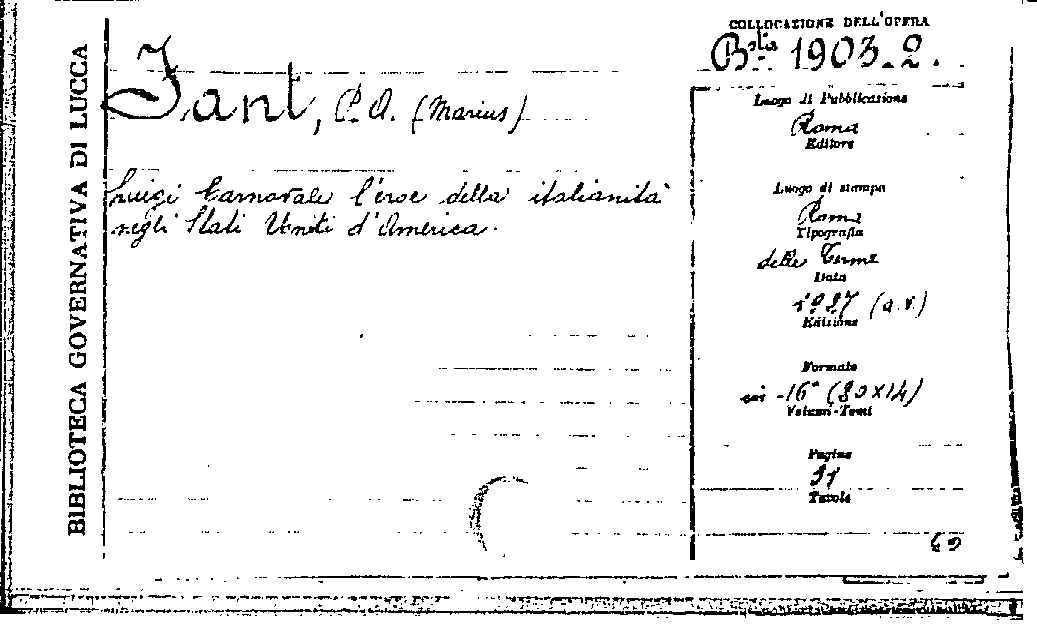 BIBLIOTECA GOVERNATIVA DI LUCCA
COLLOCAZIONE DELL'OPERA
B.ta 1903.2.
Fant, P.A. (Marius)
Luigi Carnovale l'eroe della italianità
negli Stati Uniti d'America.
Luogo di Pubblicazione
Roma
Editore
Luogo di stampa
Roma
Tipografia
delle Terme
Data
1927 (a.v.)
Edizione
Formato
in-16° (20x14)
Volumi-Tomi
Pagine
Tavole